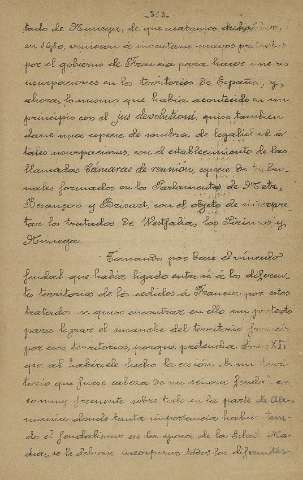 -313-
tado de Nimega, de que acabamos
en 1679, vinieron á
por el gobierno de Francia para hacer nuevas
incorporaciones en los territorios de España, y,
ahora, lo mismo que había acontecido en un
principio con el jus devolutionis, quiso también
darse una especie de sombra de legalidad á
tales incorporaciones, con el establecimiento de las
llamadas Cámaras de reunión, especie de tribu-
nales formados en los Parlamentos de Metz,
Besançon y Brisach, con el objeto de interpre-
tar los tratados de Westfalia, los Pirineos y
Nimega.
Tomando por base el vínculo
feudal que había ligado entre sí á los diferen-
tes territorios de los cedidos á Francia por estos
tratados se quiso encontrar en ello un pretexto
para lograr el ensanche del territorio
por esos territorios, porque pretendía Luis XIV,
que al haberle hecho la cesión de un terri-
torio que fuese cabeza de un señorío feudal,
como muy frecuente sobre todo en la parte de Ale-
mania, donde tanta importancia había teni-
do el feudalismo en la época de la Edad Me-
dia, se le debían incorporar todos los diferentes